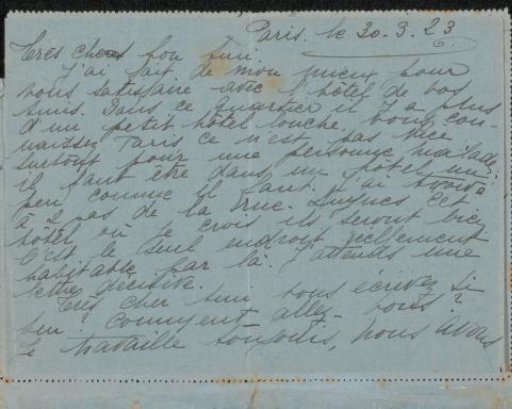 Paris. le 30.3.23
Très cher bon ami.
J'ai fait de mon mieux pour
vous satisfaire avec l'hôtel de vos
amis. Dans ce quartier il y a plus
d'un petit hôtel louche. Vous con-
naissez Paris ce n'est pas
surtout pour une personne malade.
il faut être dans un hôtel un
peu comme il faut. J'ai trouvé
à 2 pas de la rue. cet
hôtel où je crois ils seront bien
C'est le seul endroit réellement
habitable par là. J'attends une
lettre décisive.
Très cher ami vous écrivez si
peu! comment allez-vous?
Je travaille toujours, nous avons